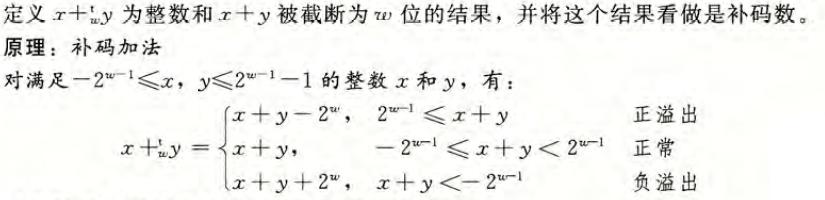 定义 x+ᵗ_w y 为整数和 x+y 被截断为 w 位的结果，并将这个结果看做是补码数。
原理：补码加法
对满足−2^{w−1}≤x，y≤2^{w−1}−1 的整数 x 和 y，有：
x+y−2^w， 2^{w−1}≤x+y 正溢出
x+ᵗ_w y = { x+y， −2^{w−1}≤x+y<2^{w−1} 正常
x+y+2^w， x+y<−2^{w−1} 负溢出